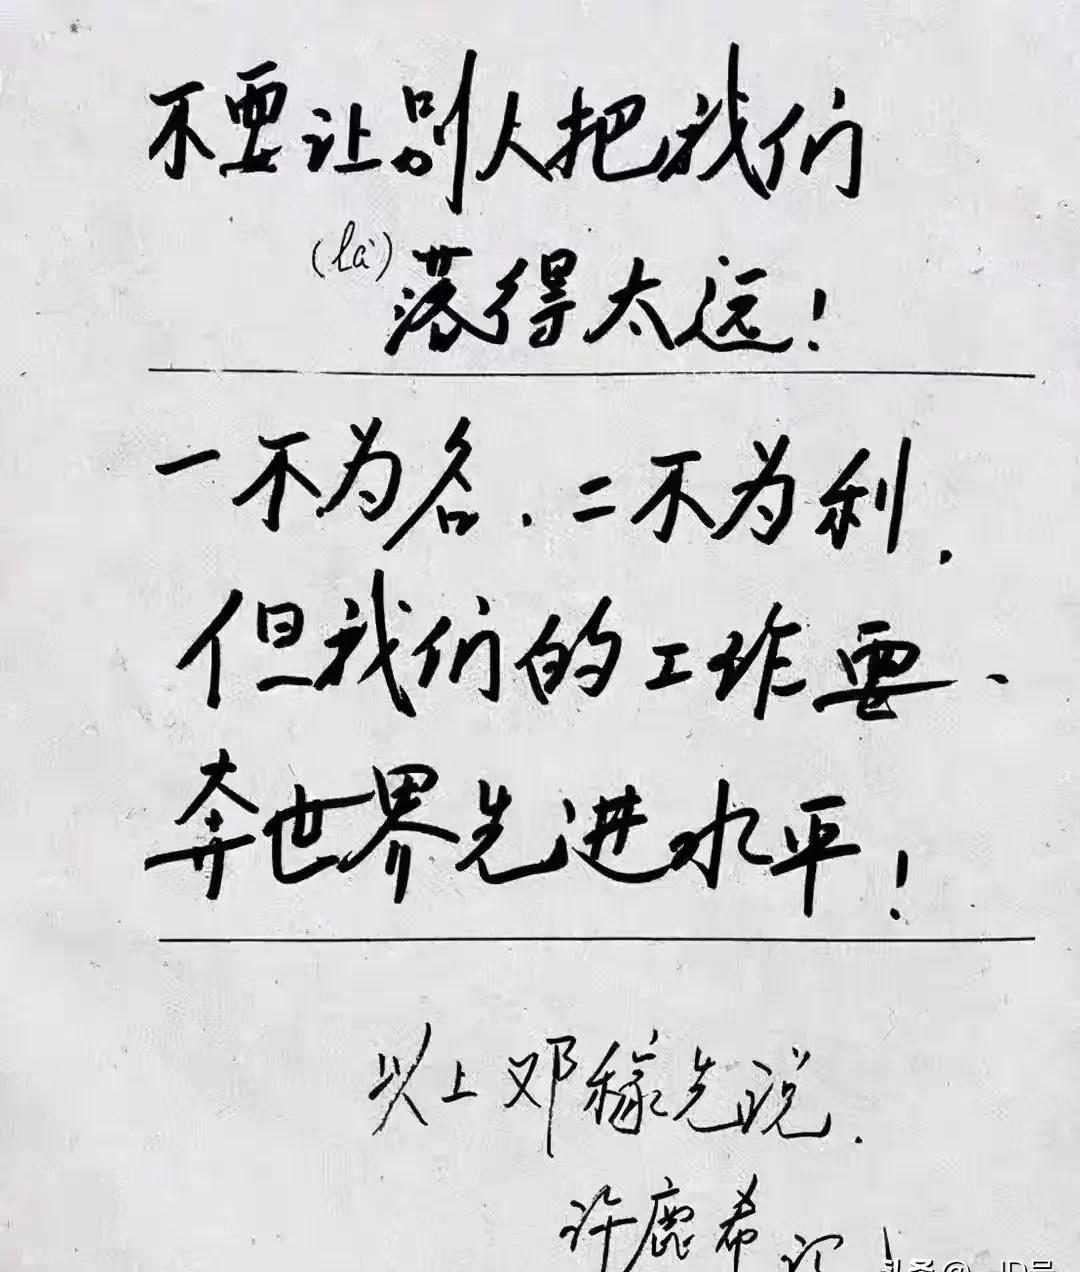 不要让别人把我们
(là)落得太远!
一不为名.二不为利.
但我们的工作要、
奔世界先进水平!
以上邓稼先说.
许鹿希 记